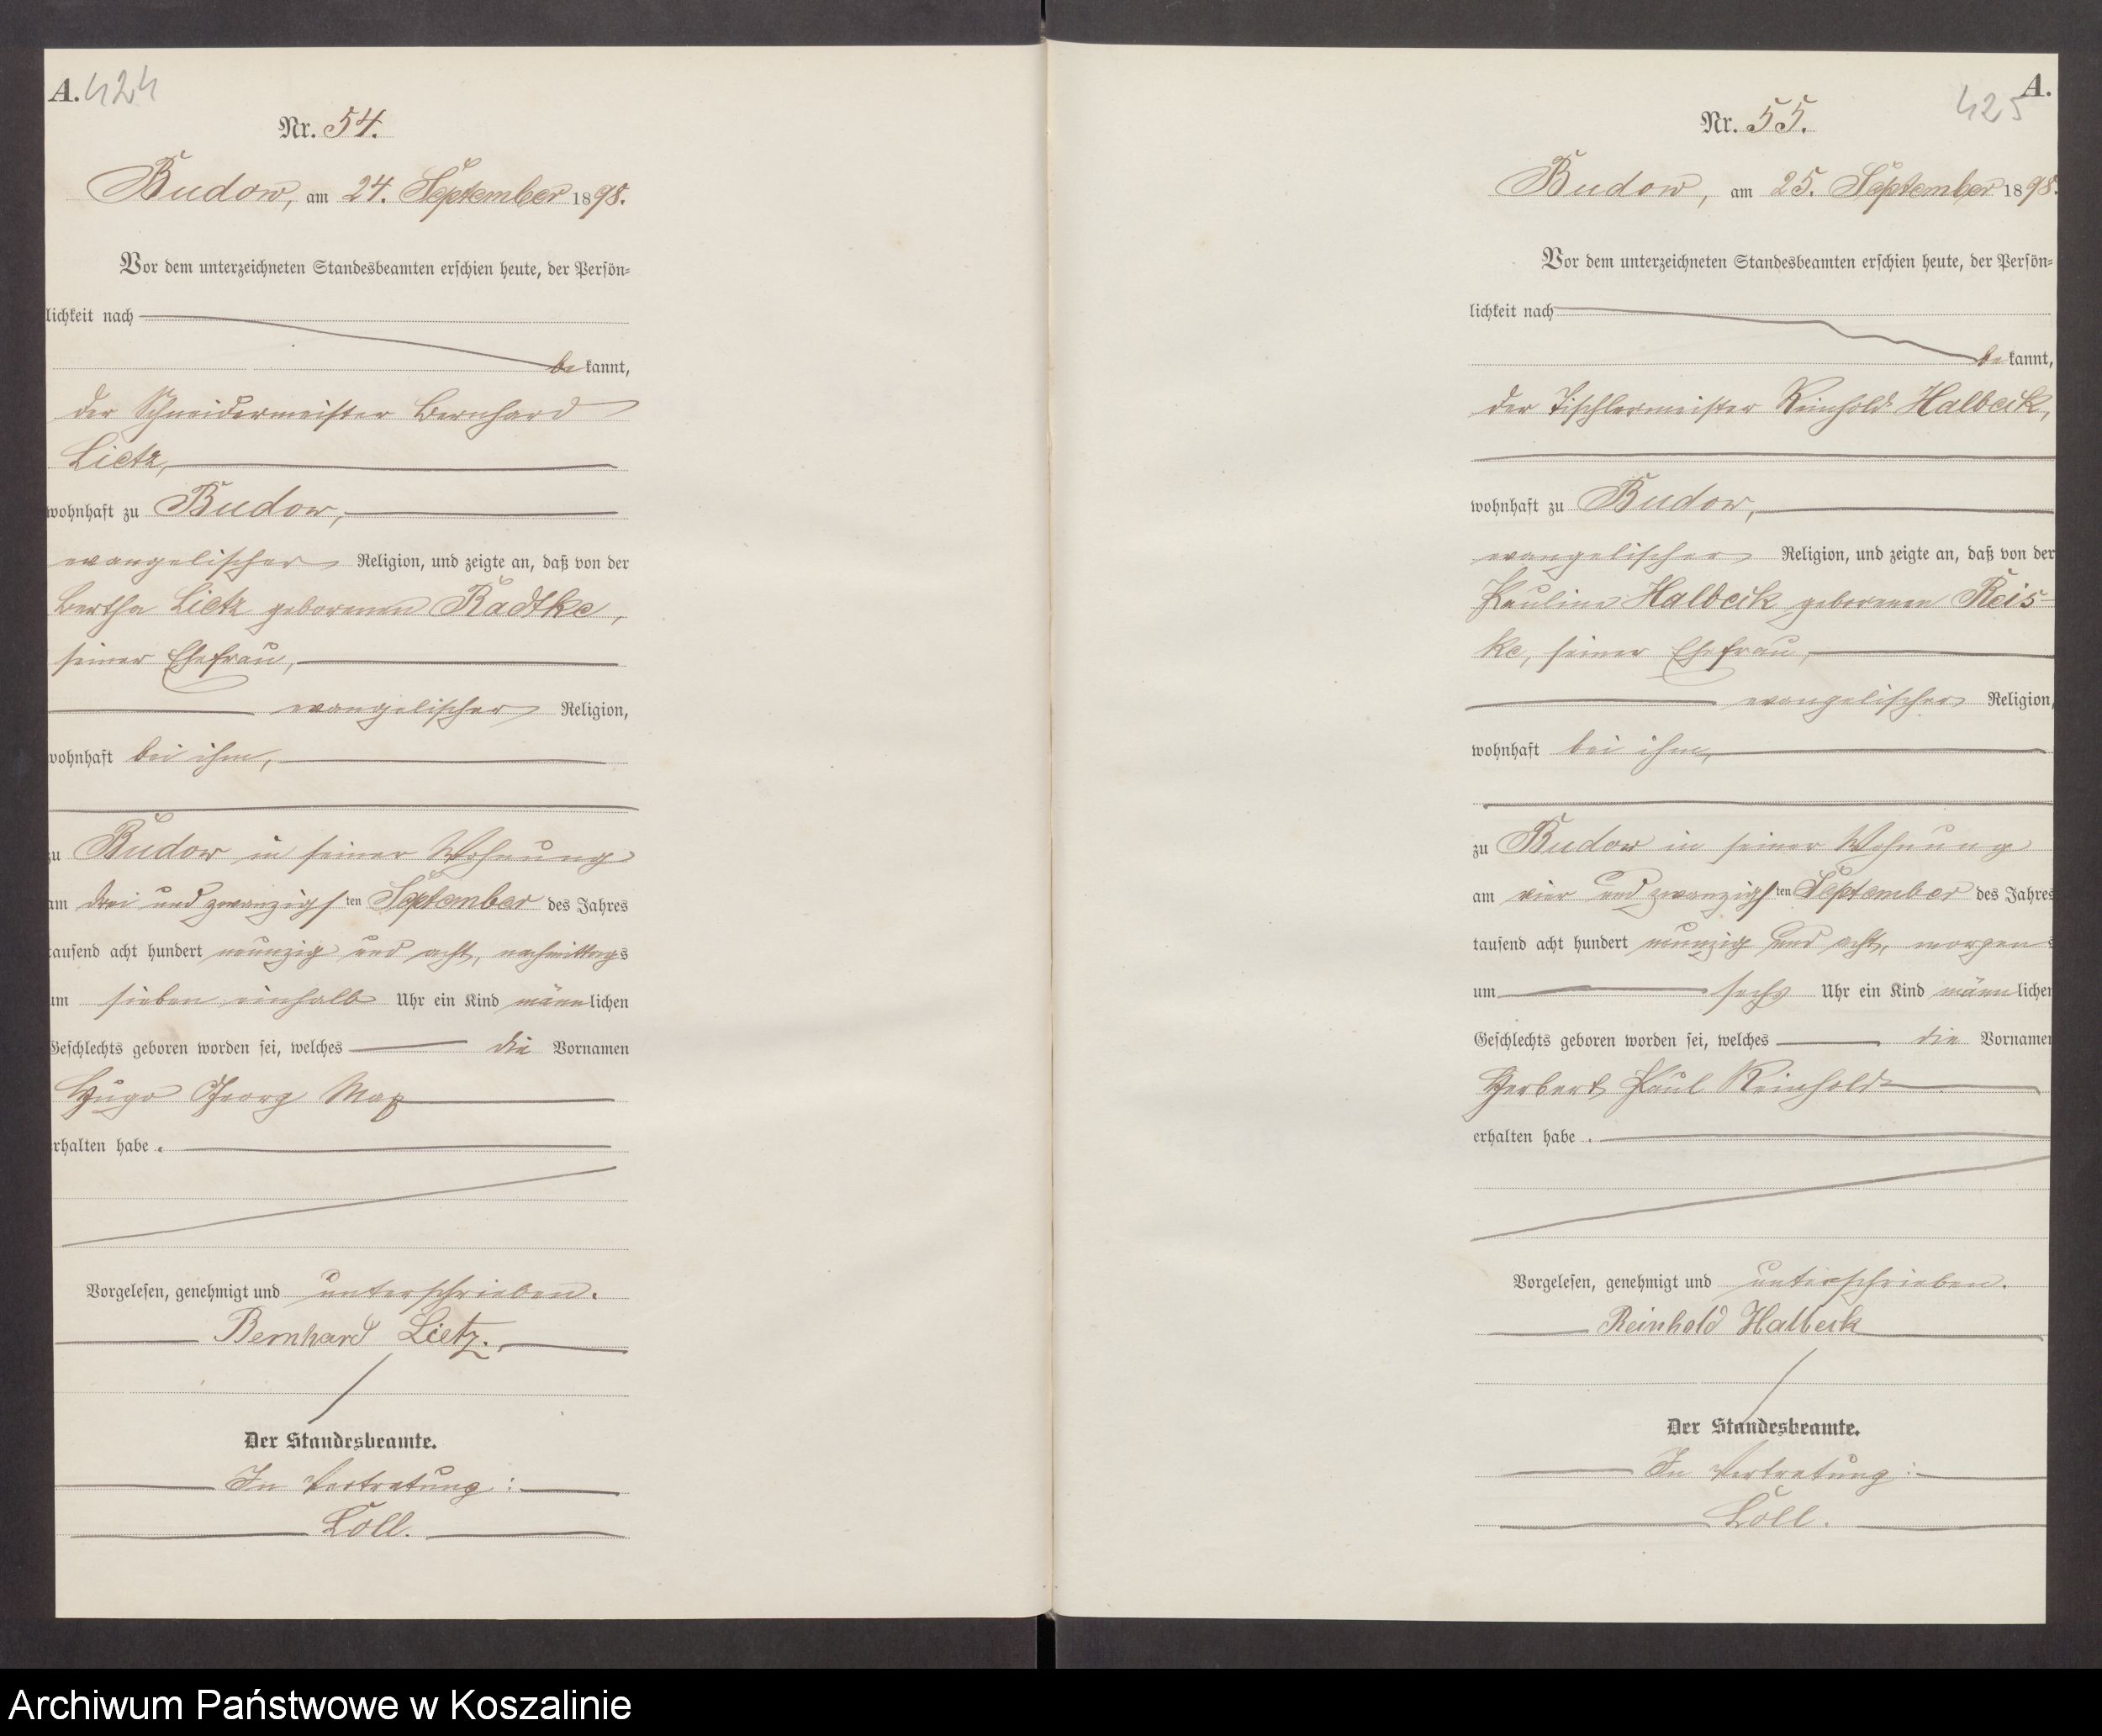 A. 424
Nr. 54.
Budow, am 24. September 1898.
Vor dem unterzeichneten Standesbeamten erschien heute, der Persön-
lichkeit nach
be kannt,
der Schneidermeister Bernhard
Lietz,
wohnhaft zu Budow,
evangelischer Religion, und zeigte an, daß von der
Bertha Lietz geborenen Radtke,
seiner Ehefrau,
evangelischer Religion,
wohnhaft bei ihm,
zu Budow in seiner Wohnung
am drei und zwanzigs ten September des Jahres
tausend acht hundert neunzig und acht, nachmittags
um sieben einhalb Uhr ein Kind männlichen
Geschlechts geboren worden sei, welches die Vornamen
Hugo Georg Max
erhalten habe.
Vorgelesen, genehmigt und unterschrieben.
Bernhard Lietz.
Der Standesbeamte.
In Vertretung:
Löll.
A.
425
Nr. 55.
Budow, am 25. September 1898.
Vor dem unterzeichneten Standesbeamten erschien heute, der Persön-
lichkeit nach
be kannt,
der Tischlermeister Reinhold Halbeck,
wohnhaft zu Budow,
evangelischer Religion, und zeigte an, daß von der
Pauline Halbeck geborenen Reis-
ke, seiner Ehefrau,
evangelischer Religion,
wohnhaft bei ihm,
zu Budow in seiner Wohnung
am vier und zwanzigs ten September des Jahres
tausend acht hundert neunzig und acht, morgens
um sechs Uhr ein Kind männlichen
Geschlechts geboren worden sei, welches die Vornamen
Herbert Paul Reinhold
erhalten habe.
Vorgelesen, genehmigt und unterschrieben.
Reinhold Halbeck
Der Standesbeamte.
In Vertretung:
Löll.
Archiwum Państwowe w Koszalinie